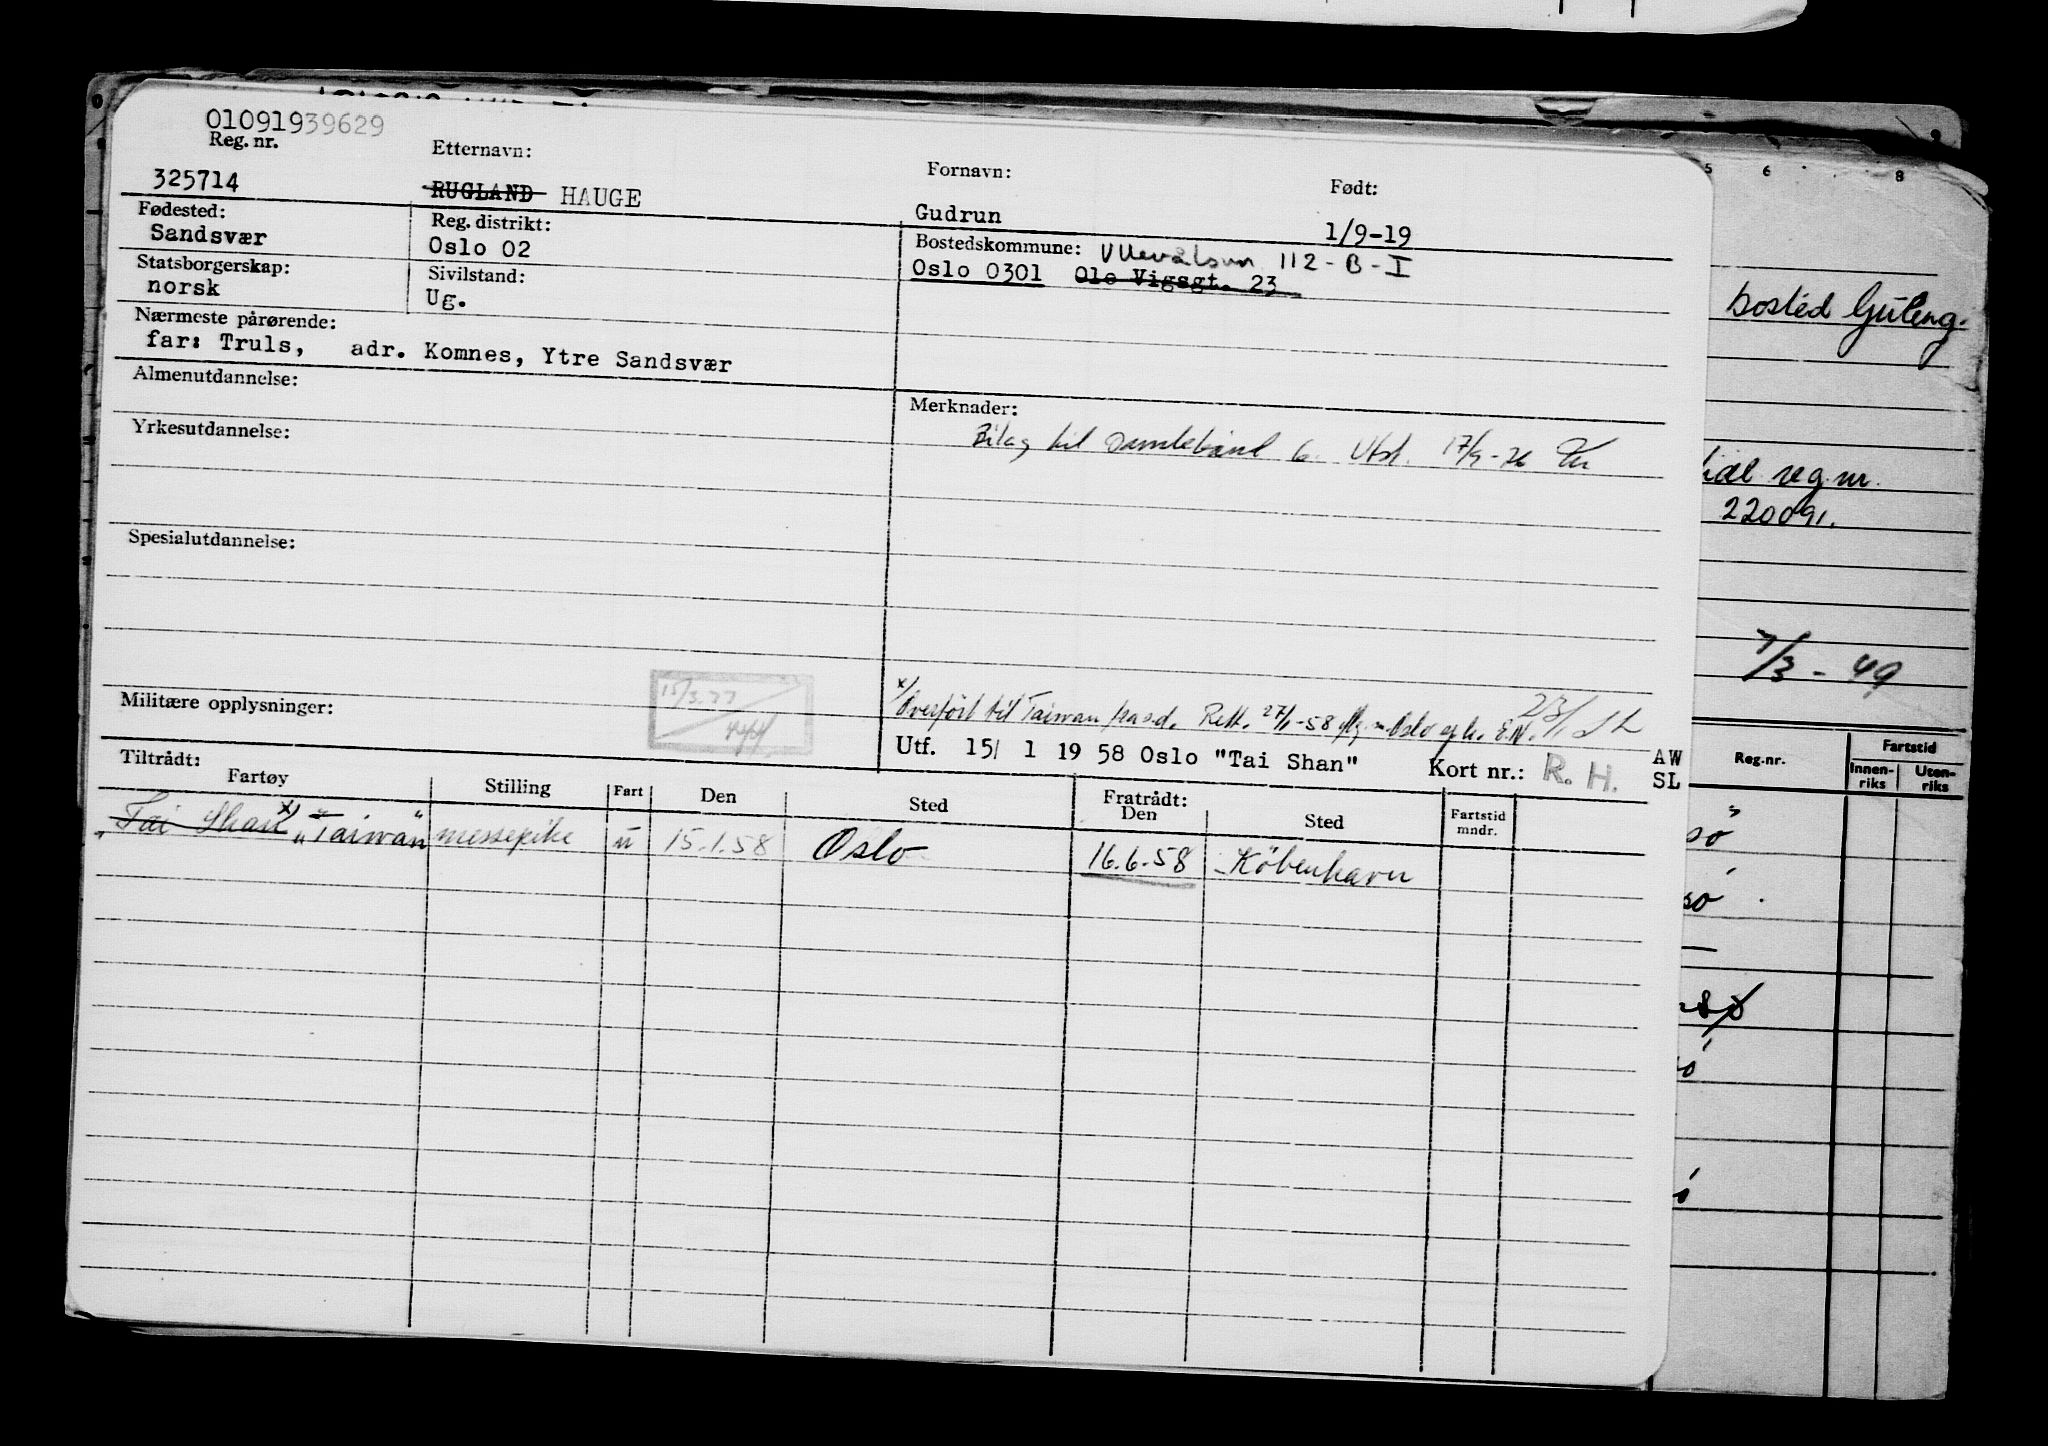 01091939629
Reg. nr.
325714
Etternavn:
RUGLAND HAUGE
Fornavn:
Gudrun
Født:
1/9-19
Fødested:
Sandsvær
Reg. distrikt:
Oslo 02
Bostedskommune: Ullevålsvn 112-B-I
Oslo 0301 Ole Vigsgt. 23
Statsborgerskap:
norsk
Sivilstand:
Ug.
Nærmeste pårørende:
far: Truls, adr. Komnes, Ytre Sandsvær
Almenutdannelse:
Merknader:
Bilag til 6. Utst. 17/9-76
Yrkesutdannelse:
Spesialutdannelse:
15/3.77
Militære opplysninger:
x/ Overført til Taiwan fra s.d. Rett. 27/1-58 Oslo E.N. 23/1 SL
Utf. 15/ 1 19 58 Oslo "Tai Shan"
Kort nr.: R. H.
AW
SL
Tiltrådt:
Fartøy Stilling Fart Den Sted
Fratrådt:
Den Sted
Fartstid
mndr.
"Tai Shan x/ "Taiwan" messepike u 15.1.58 Oslo 16.6.58 København
5 6 8
bosted Guleng.
reg.nr.
220091.
7/3-49
Reg.nr.
Fartstid
Innen-
riks
Uten-
riks